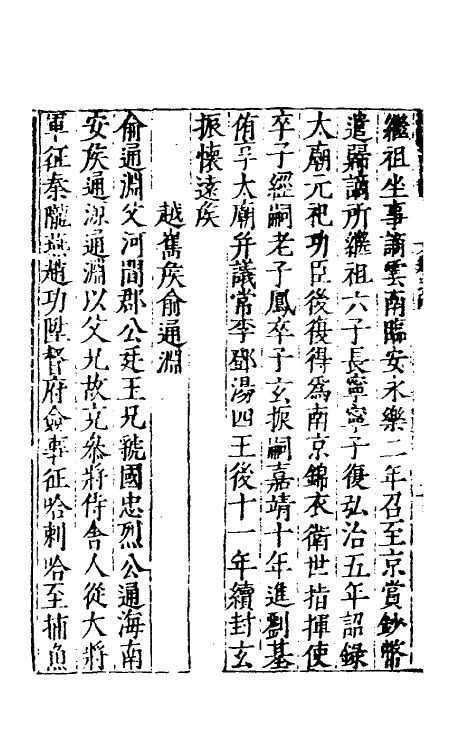 繼祖坐事謫雲南臨安永樂二年召至京賞鈔幣
遣歸謫所繼祖六子長寧寧子復弘治五年詔錄
太廟元祀功臣後復得爲南京錦衣衛世指揮使
卒子經嗣老子鳳卒子玄振嗣嘉靖十年進劉基
侑享太廟幷議常李鄧湯四王後十一年續封玄
振懷遠侯
越巂侯俞通淵
俞通淵父河間郡公廷玉兄虢國忠烈公通海南
安侯通源通淵以父兄故充叅將侍舍人從大將
軍征秦隴燕趙功陞督府僉事征哈剌哈至捕魚